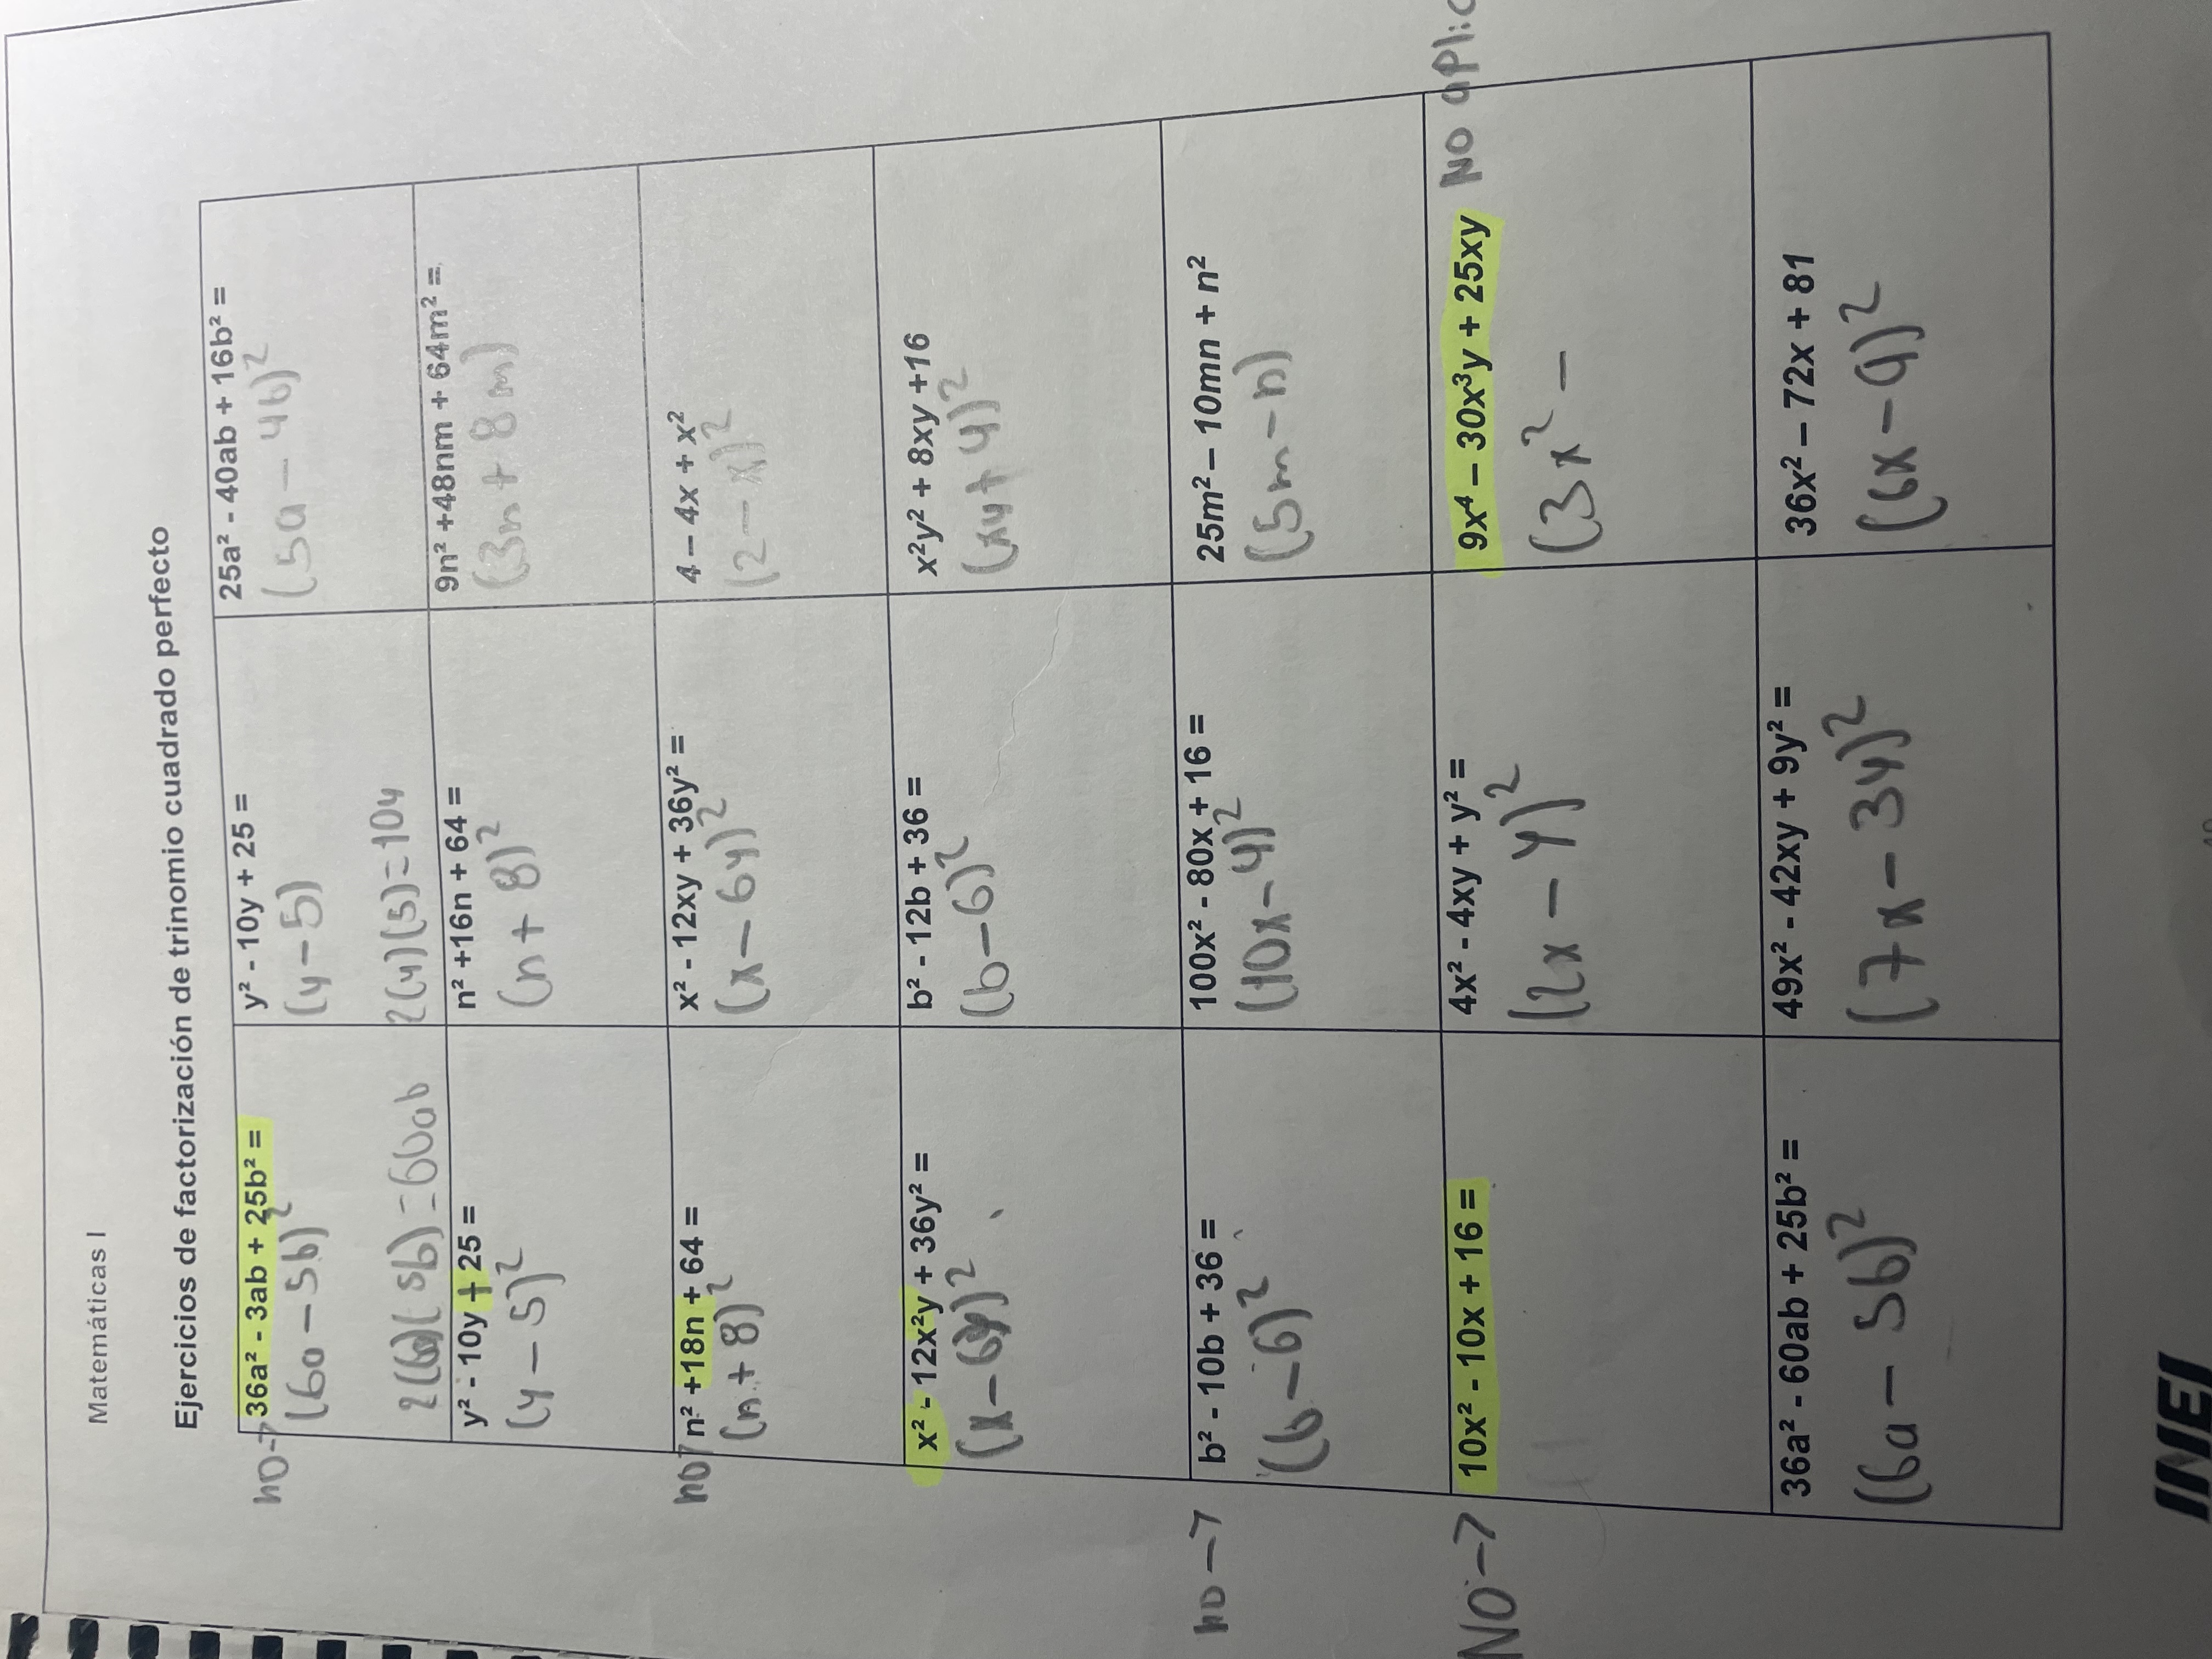 Matemáticas I
Ejercicios de factorización de trinomio cuadrado perfecto
no→ 36a² - 3ab + 25b² =
(6a - 5b)²
2(6a)(5b)=60ab
y² - 10y + 25 =
(y - 5)
2(y)(5)=10y
25a² - 40ab + 16b² =
(5a - 4b)²
y² - 10y + 25 =
(y - 5)²
n² +16n + 64 =
(n + 8)²
9n² +48nm + 64m² =
(3n + 8m)
no→ n² +18n + 64 =
(n + 8)²
x² - 12xy + 36y² =
(x - 6y)²
4 – 4x + x²
(2 - x)²
x² - 12x²y + 36y² =
(x - 6y)²
b² - 12b + 36 =
(b - 6)²
x²y² + 8xy +16
(xy + 4)²
no→ b² - 10b + 36 =
(b - 6)²
100x² - 80x + 16 =
(10x - 4)²
25m² – 10mn + n²
(5m - n)
NO→ 10x² - 10x + 16 =
4x² - 4xy + y² =
(2x - y)²
9x⁴ – 30x³y + 25xy NO aplic
(3x² -
36a² - 60ab + 25b² =
(6a - 5b)²
49x² - 42xy + 9y² =
(7x - 3y)²
36x² – 72x + 81
(6x - 9)²
INEI